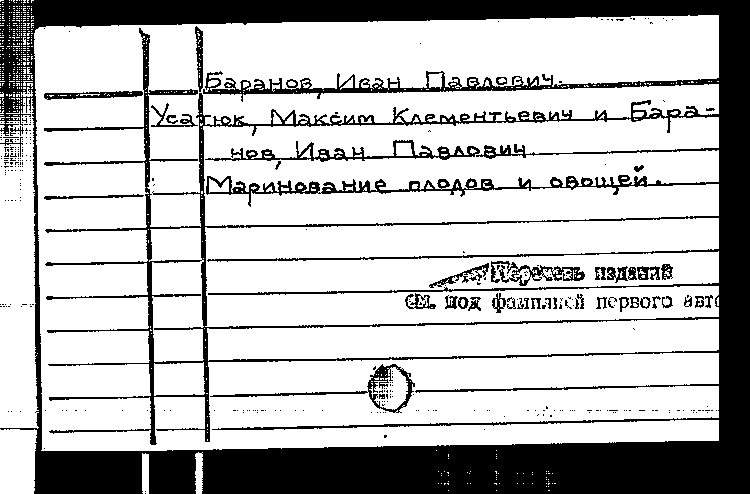 Баранов, Иван Павлович.
Усатюк, Максим Клементьевич и Бара-
нов, Иван Павлович
Маринование плодов и овощей.
Перечень изданий
см. под фамилией первого авто